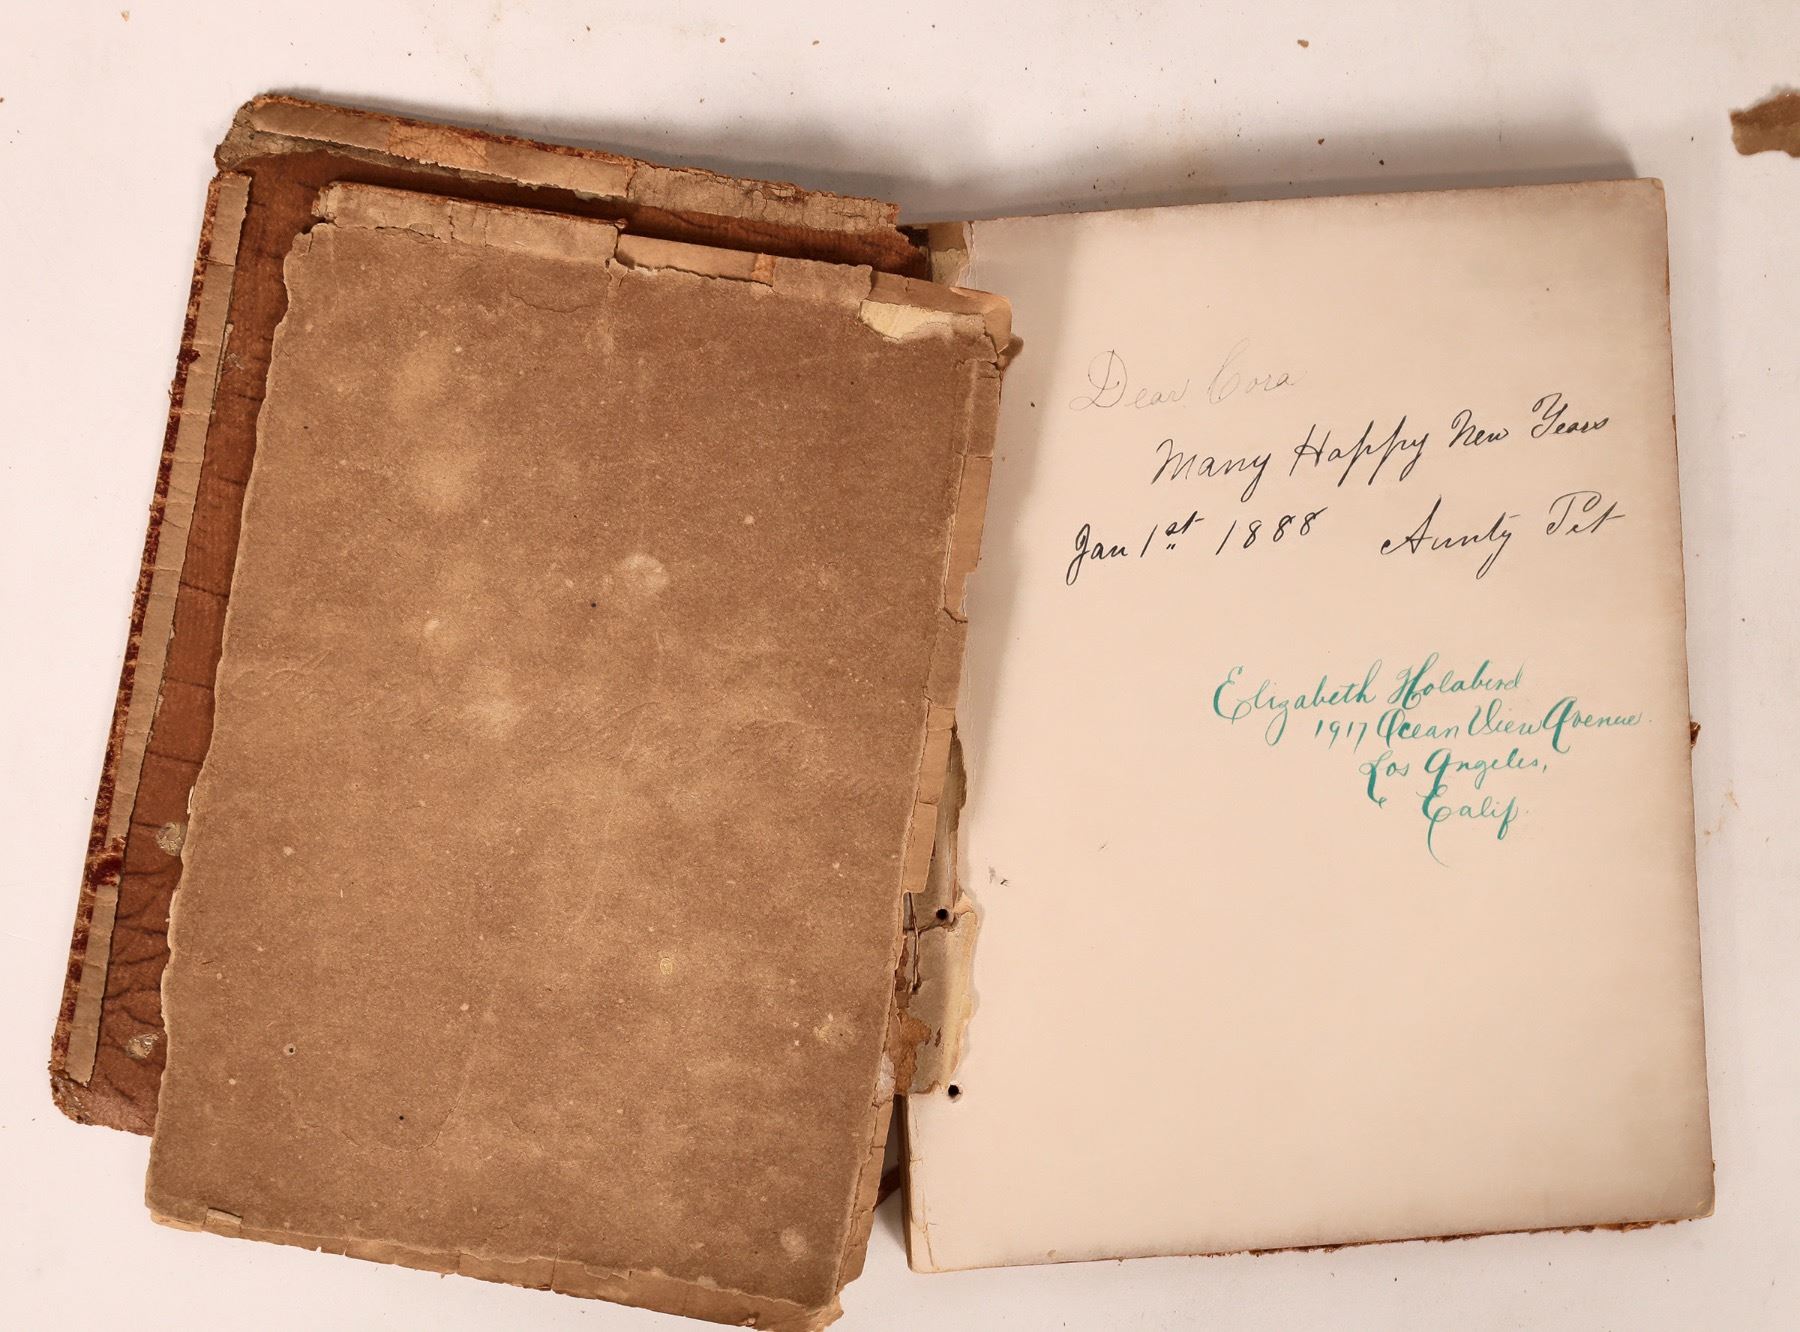 Dear Cora
Many Happy New Years
Jan 1st 1888 Aunty Pet
Elizabeth Holabird
1917 Ocean View Avenue
Los Angeles,
Calif.